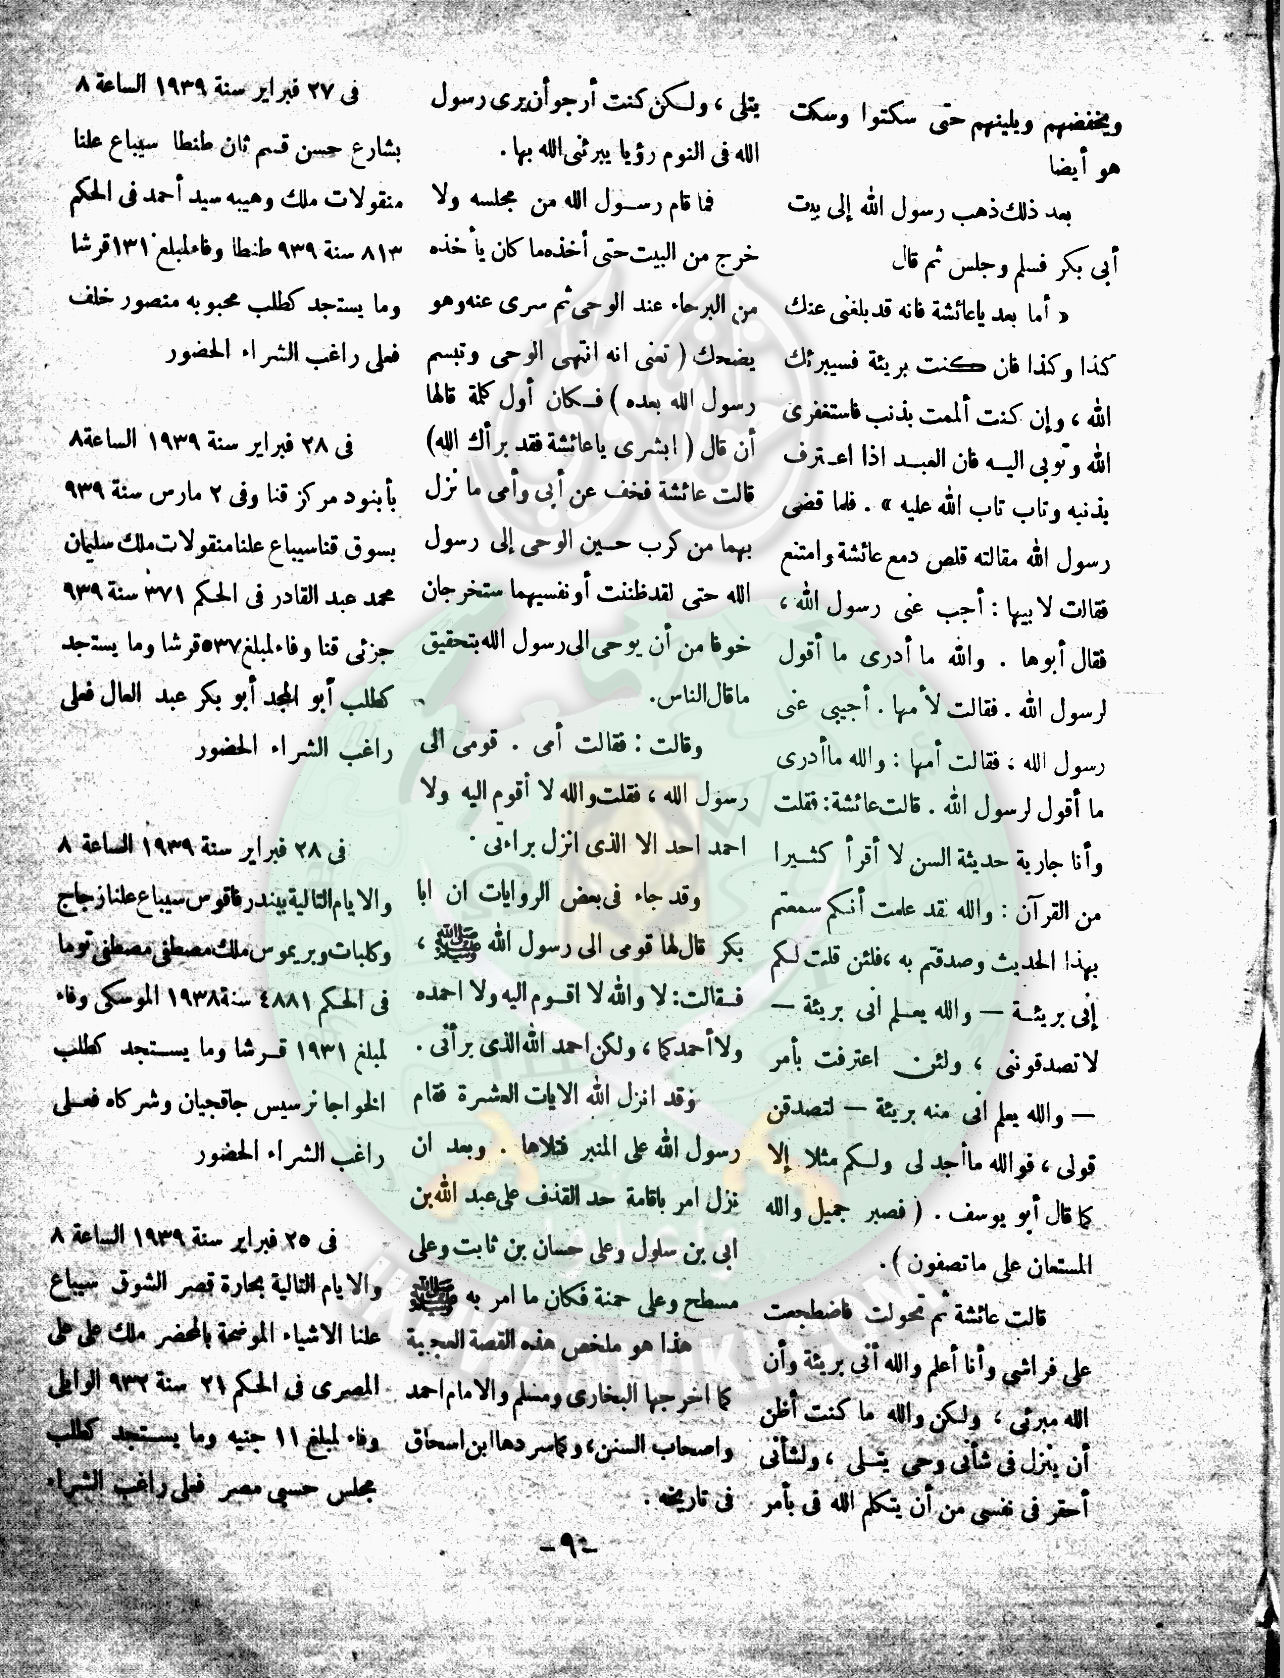 ويخفضهم ويلينهم حتى سكتوا وسكت
هو أيضا
بعد ذلك ذهب رسول الله إلى بيت
أبى بكر فسلم وجلس ثم قال
« أما بعد ياعائشة فانه قد بلغنى عنك
كذا وكذا فان كنت بريئة فسيبرئك
الله ، وإن كنت ألممت بذنب فاستغفرى
الله وتوبى اليه فان العبد اذا اعترف
بذنبه وتاب تاب الله عليه » . فلما قضى
رسول الله مقالته قلص دمع عائشة وامتنع
فقالت لابيها : أجب عنى رسول الله ،
فقال أبوها . والله ما أدرى ما أقول
لرسول الله . فقالت لأمها . أجيبى عنى
رسول الله ، فقالت أمها : والله ماأدرى
ما أقول لرسول الله . قالت عائشة : فقلت
وأنا جارية حديثة السن لا أقرأ كثيرا
من القرآن : والله لقد علمت أنكم سمعتم
بهذا الحديث وصدقتم به ، فلئن قلت لكم
إنى بريئة — والله يعلم انى بريئة —
لا تصدقوننى ، ولئن اعترفت بأمر
— والله يعلم انى منه بريئة — لتصدقن
قولى ، فوالله ماأجد لى ولكم مثلا إلا
كما قال أبو يوسف . ( فصبر جميل والله
المستعان على ماتصفون ) .
قالت عائشة ثم تحولت فاضطجعت
على فراشى وأنا أعلم والله أنى بريئة وأن
الله مبرئى ، ولكن والله ما كنت أظن
أن ينزل فى شأنى وحى يتلى ، ولشأنى
أحقر فى نفسى من أن يتكلم الله فى بأمر
يتلى ، ولكن كنت أرجو أن يرى رسول
الله فى النوم رؤيا يبرئنى الله بها .
فما قام رسول الله من مجلسه ولا
خرج من البيت حتى أخذه ما كان يأخذه
من البرحاء عند الوحى ثم سرى عنه وهو
يضحك ( تعنى انه انتهى الوحى وتبسم
رسول الله بعده ) فكان أول كلمة قالها
أن قال ( ابشرى ياعائشة فقد برأك الله )
قالت عائشة فخف عن أبى وأمى ما نزل
بهما من كرب حين الوحى إلى رسول
الله حتى لقد ظننت أو نفسيهما ستخرجان
خوفا من أن يوحى الى رسول الله بتحقيق
ماقال الناس .
وقالت : فقالت أمى . قومى الى
رسول الله ، فقلت والله لا أقوم اليه ولا
احمد احد الا الذى انزل براءتى .
وقد جاء فى بعض الروايات ان ابا
بكر قال لها قومى الى رسول الله ﷺ ،
فقالت : لا والله لا اقوم اليه ولا احمده
ولا أحمدكما ، ولكن احمد الله الذى برأنى .
وقد انزل الله الايات العشرة فقام
رسول الله على المنبر فتلاها . وبعد ان
نزل امر باقامة حد القذف على عبد الله بن
ابى بن سلول وعلى حسان بن ثابت وعلى
مسطح وعلى حمنة فكان ما امر به ﷺ
هذا هو ملخص هذه القصة العجيبة
كما اخرجها البخارى ومسلم والامام احمد
واصحاب السنن ، وكما سردها ابن اسحاق
فى تاريخه .
فى ٢٧ فبراير سنة ١٩٣٩ الساعة ٨
بشارع حسن قسم ثان طنطا سيباع علنا
منقولات ملك وهيبه سيد أحمد فى الحكم
٨١٣ سنة ٩٣٩ طنطا وفاء لمبلغ ١٣١ قرشا
وما يستجد كطلب محبوبه منصور خلف
فعلى راغب الشراء الحضور
فى ٢٨ فبراير سنة ١٩٣٩ الساعة ٨
بأبنود مركز قنا وفى ٢ مارس سنة ٩٣٩
بسوق قنا سيباع علنا منقولات ملك سليمان
محمد عبد القادر فى الحكم ٣٧١ سنة ٩٣٩
جزئى قنا وفاء لمبلغ ٥٣٧ قرشا وما يستجد
كطلب أبو المجد أبو بكر عبد العال فعلى
راغب الشراء الحضور
فى ٢٨ فبراير سنة ١٩٣٩ الساعة ٨
والايام التالية ببندر فاقوس سيباع علنا زجاج
وكلبات وبريموس ملك مصطفى مصطفى توما
فى الحكم ٤٨٨١ سنة ١٩٣٨ الموسكى وفاء
لمبلغ ١٩٣١ قرشا وما يستجد كطلب
الخواجا نرسيس جاقجيان وشركاه فعلى
راغب الشراء الحضور
فى ٢٥ فبراير سنة ١٩٣٩ الساعة ٨
والايام التالية بحارة قصر الشوق سيباع
علنا الاشياء الموضحة بالمحضر ملك على على
المصرى فى الحكم ٢١ سنة ٩٣٢ الوايلى
وفاء لمبلغ ١١ جنيه وما يستجد كطلب
مجلس حسبى مصر فعلى راغب الشراء
— ٩ —